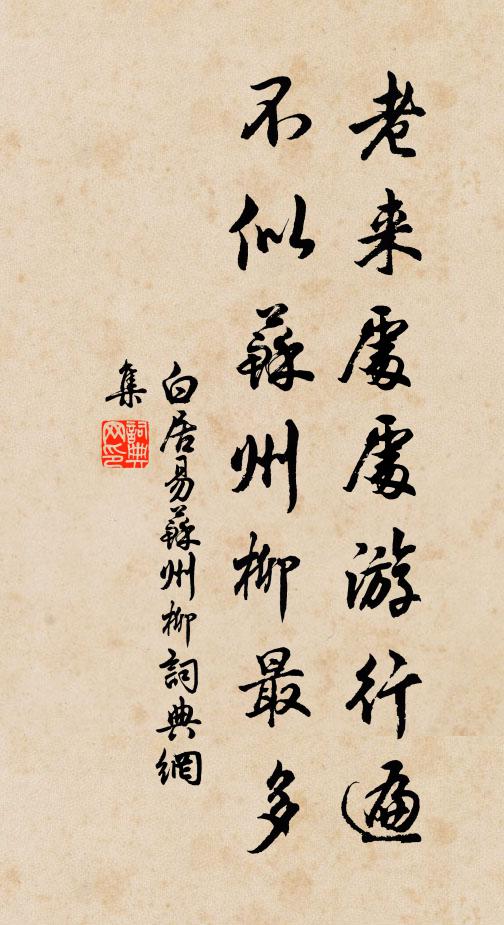 老来處處游行遍
不似蘇州柳最多
白居易蘇州柳詞典網
集
詞典
网印